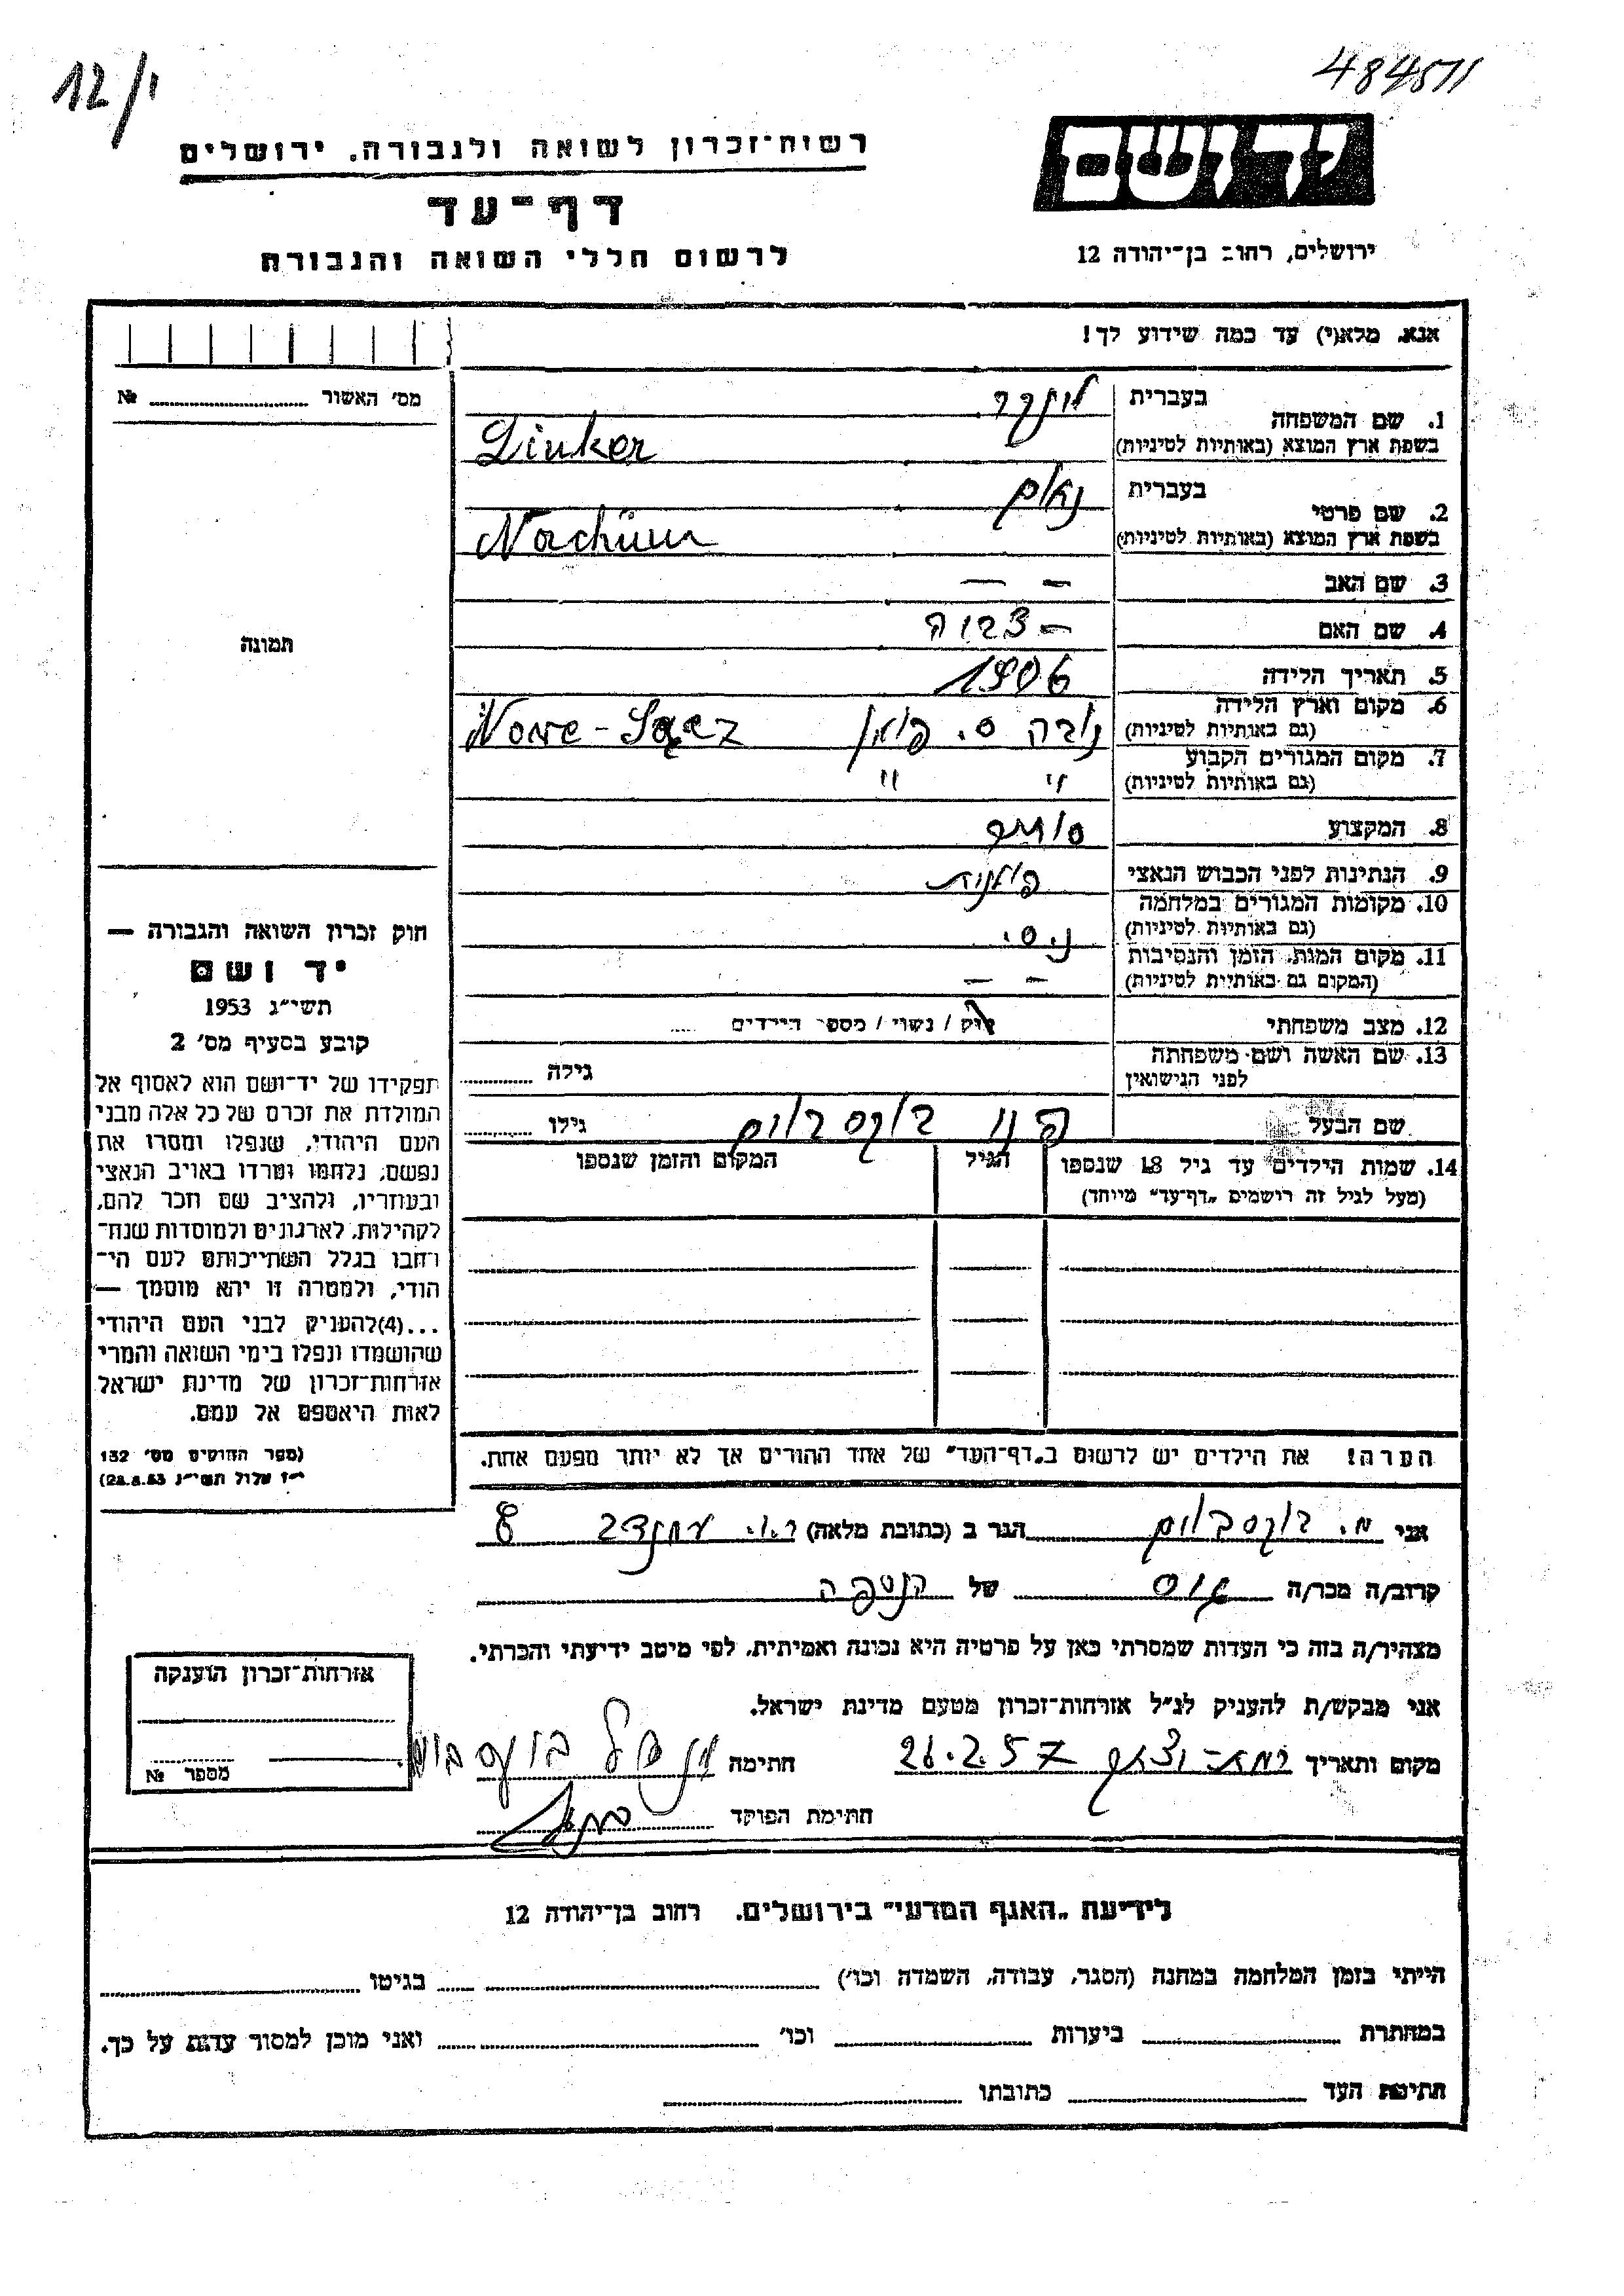 12/י
484511
יד ושם
רשות־זכרון לשואה ולגבורה, ירושלים
דף־עד
לרשום חללי השואה והגבורה
ירושלים, רחוב בן־יהודה 12
אנא, מלא(י) עד כמה שידוע לך!
מס׳ האשור № 
1. שם המשפחה
בעברית לינקר
בשפת ארץ המוצא (באותיות לטיניות) Linker
2. שם פרטי
בעברית נחום
בשפת ארץ המוצא (באותיות לטיניות) Nachüm
3. שם האב — —
4. שם האם —
5. תאריך הלידה 1906
6. מקום וארץ הלידה
(גם באותיות לטיניות) נובה ס. פולין Nowe-Sącz
7. מקום המגורים הקבוע
(גם באותיות לטיניות) " "
8. המקצוע סוחר
9. הנתינות לפני הכבוש הנאצי פולנית
10. מקומות המגורים במלחמה
(גם באותיות לטיניות) נ. ס.
11. מקום המות, הזמן והנסיבות
(המקום גם באותיות לטיניות) — —
12. מצב משפחתי רוק / נשוי / מספר הילדים
13. שם האשה ושם משפחתה
לפני הנישואין גילה
שם הבעל בוקסבוים גילו
14. שמות הילדים עד גיל 18 שנספו הגיל המקום והזמן שנספו
(מעל לגיל זה רושמים „דף־עד״ מיוחד)
הערה! את הילדים יש לרשום ב„דף־העד״ של אחד ההורים אך לא יותר מפעם אחת.
תמונה
חוק זכרון השואה והגבורה —
יד ושם
תשי״ג 1953
קובע בסעיף מס׳ 2
תפקידו של יד־ושם הוא לאסוף אל
המולדת את זכרם של כל אלה מבני
העם היהודי, שנפלו ומסרו את
נפשם, נלחמו ומרדו באויב הנאצי
ובעוזריו, ולהציב שם וזכר להם,
לקהילות, לארגונים ולמוסדות שנח־
רבו בגלל השתייכותם לעם הי־
הודי, ולמטרה זו יהא מוסמך —
...(4)להעניק לבני העם היהודי
שהושמדו ונפלו בימי השואה והמרי
אזרחות־זכרון של מדינת ישראל
לאות היאספם אל עמם.
(ספר החוקים מס׳ 132
י״ז אלול תשי״ג 28.8.53)
אני מ. בוקסבוים הגר ב (כתובת מלאה) 8
קרוב/ה מכר/ה גיס של הנספה
מצהיר/ה בזה כי העדות שמסרתי כאן על פרטיה היא נכונה ואמיתית, לפי מיטב ידיעתי והכרתי.
אני מבקש/ת להעניק לנ״ל אזרחות־זכרון מטעם מדינת ישראל.
מקום ותאריך 26.2.57 חתימה בוקסבוים
חתימת הפוקד
אזרחות־זכרון הוענקה
מספר №
לידיעת „האגף המדעי״ בירושלים, רחוב בן־יהודה 12
הייתי בזמן המלחמה במחנה (הסגר, עבודה, השמדה וכו׳) בגיטו
במחתרת ביערות וכו׳ ואני מוכן למסור עדות על כך.
חתימת העד כתובתו